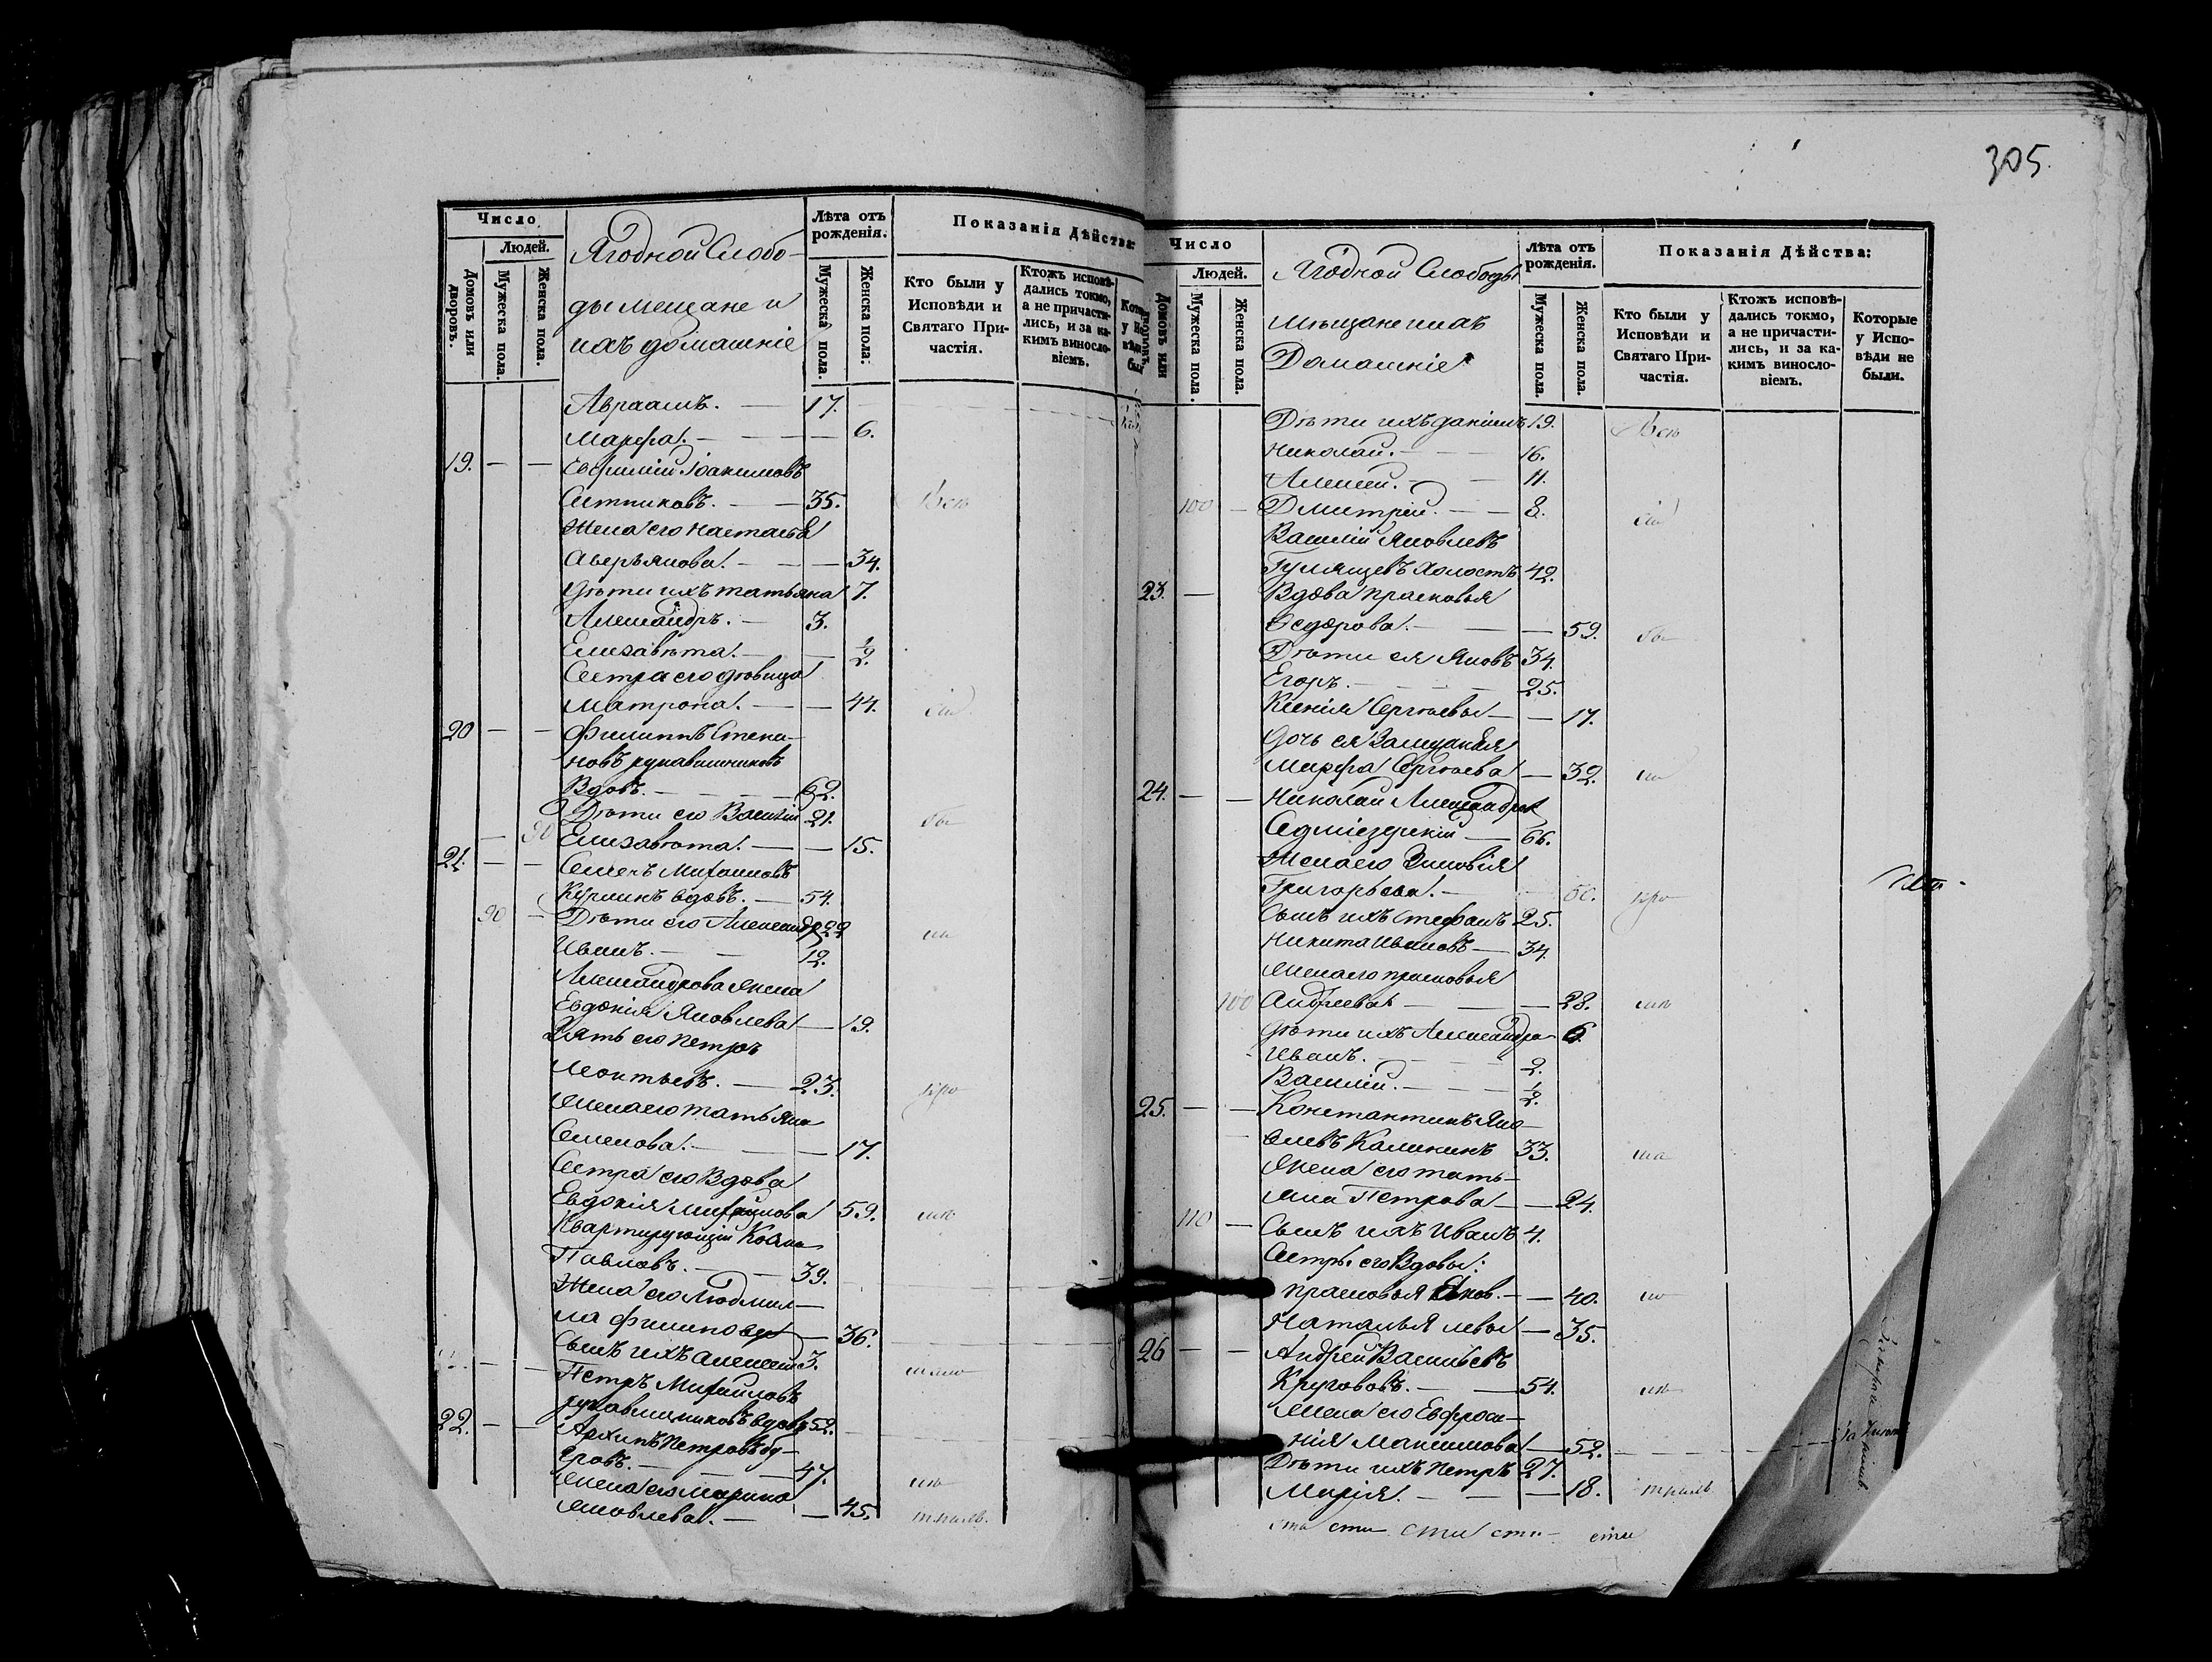 Число
Людей.
Домовъ или дворовъ.
Мужеска пола.
Женска пола.
Ягодной Слобо-
ды мещане и
ихъ домашніе
Лѣта отъ рожденія.
Мужеска пола.
Женска пола.
Показанія Дѣйства:
Кто были у Исповѣди и Святаго Причастія.
Ктожъ исповѣдались токмо, а не причастились, и за какимъ винословіемъ.
Авраамъ. — 17.
Марфа. — — 6.
19. — — Евфимій Іоакимовъ
Ситниковъ. — 35. Всѣ
Жена его Настасья
Аверьянова. — — 34.
Дѣти ихъ Татьяна 7.
Александръ. — 3.
Елизавѣта. — — 1/2.
Сестра его дѣвица
Матрона. — — 44. сіи
20 — — Филиппъ Степа-
новъ рукавишниковъ
Вдовъ. — 62.
Дѣти его Василій 21. бы
— 90 Елизавѣта. — — 15.
21. — — Семенъ Михаиловъ
вдовъ. — 54.
90 — Дѣти его Александръ 22 ли
Иванъ. — 12.
Александрова жена
Евдокія Яковлева — 19.
Зять его Петръ
Леонтьевъ. — 23. при
Жена его Татьяна
Семенова. — — 17.
Сестра его Вдова
Евдокія Михайлова 59.
Квартирующій Козма
Павловъ. — 39.
Жена его Людмил-
ла Филипова — 36.
Сынъ ихъ Алексей 3.
Петръ Михайловъ
рукавишниковъ вдовъ 52.
22. — — Архипъ Петровъ
47.
Жена его Марина
Яковлева. — — 45.
305.
Число
Людей.
Домовъ или дворовъ.
Мужеска пола.
Женска пола.
Ягодной Слободы
мѣщане ихъ
Домашніе
Лѣта отъ рожденія.
Мужеска пола.
Женска пола.
Показанія Дѣйства:
Кто были у Исповѣди и Святаго Причастія.
Ктожъ исповѣдались токмо, а не причастились, и за какимъ винословіемъ.
Которые у Исповѣди не были.
Дѣти ихъ Даніилъ 19. Всѣ
Николай. — 16.
Алексей. — 11.
100 — Дмитрей. — 8. сіи
Василій Яковлевъ
Гулящевъ холостъ 42.
23. — Вдова Прасковья
Ѳедорова. — — 59. бы
Дѣти ея Яковъ 34.
Егоръ. — 25.
Ксенія Сергѣева — — 17.
Дочь ея
Марфа Сергѣева — 32. ли
24. — — Николай Александров
Седміезерскій — 66.
Жена его Зиновія
Григорьева. — 50. при
Сынъ ихъ Стефанъ 25.
Никита Ивановъ — 34.
Жена его Прасковья
100 Андреева — — 28.
Дѣти ихъ Александра 6.
Иванъ. — 2.
Василій. — 1/2.
25. — — Константинъ Яко-
влевъ Калининъ 33.
Жена его Тать-
яна Петрова — — 24.
110 — Сынъ ихъ Иванъ 4.
Сестры его Вдовы:
Прасковья Яков. — — 40.
Наталья — 35.
26 — — Андрей Васильевъ
Кругововъ. — 54.
Жена его Евфроси-
нія Максимова — 52.
Дѣти ихъ Петръ 27.
Марія. — — 18.
сти сти сти